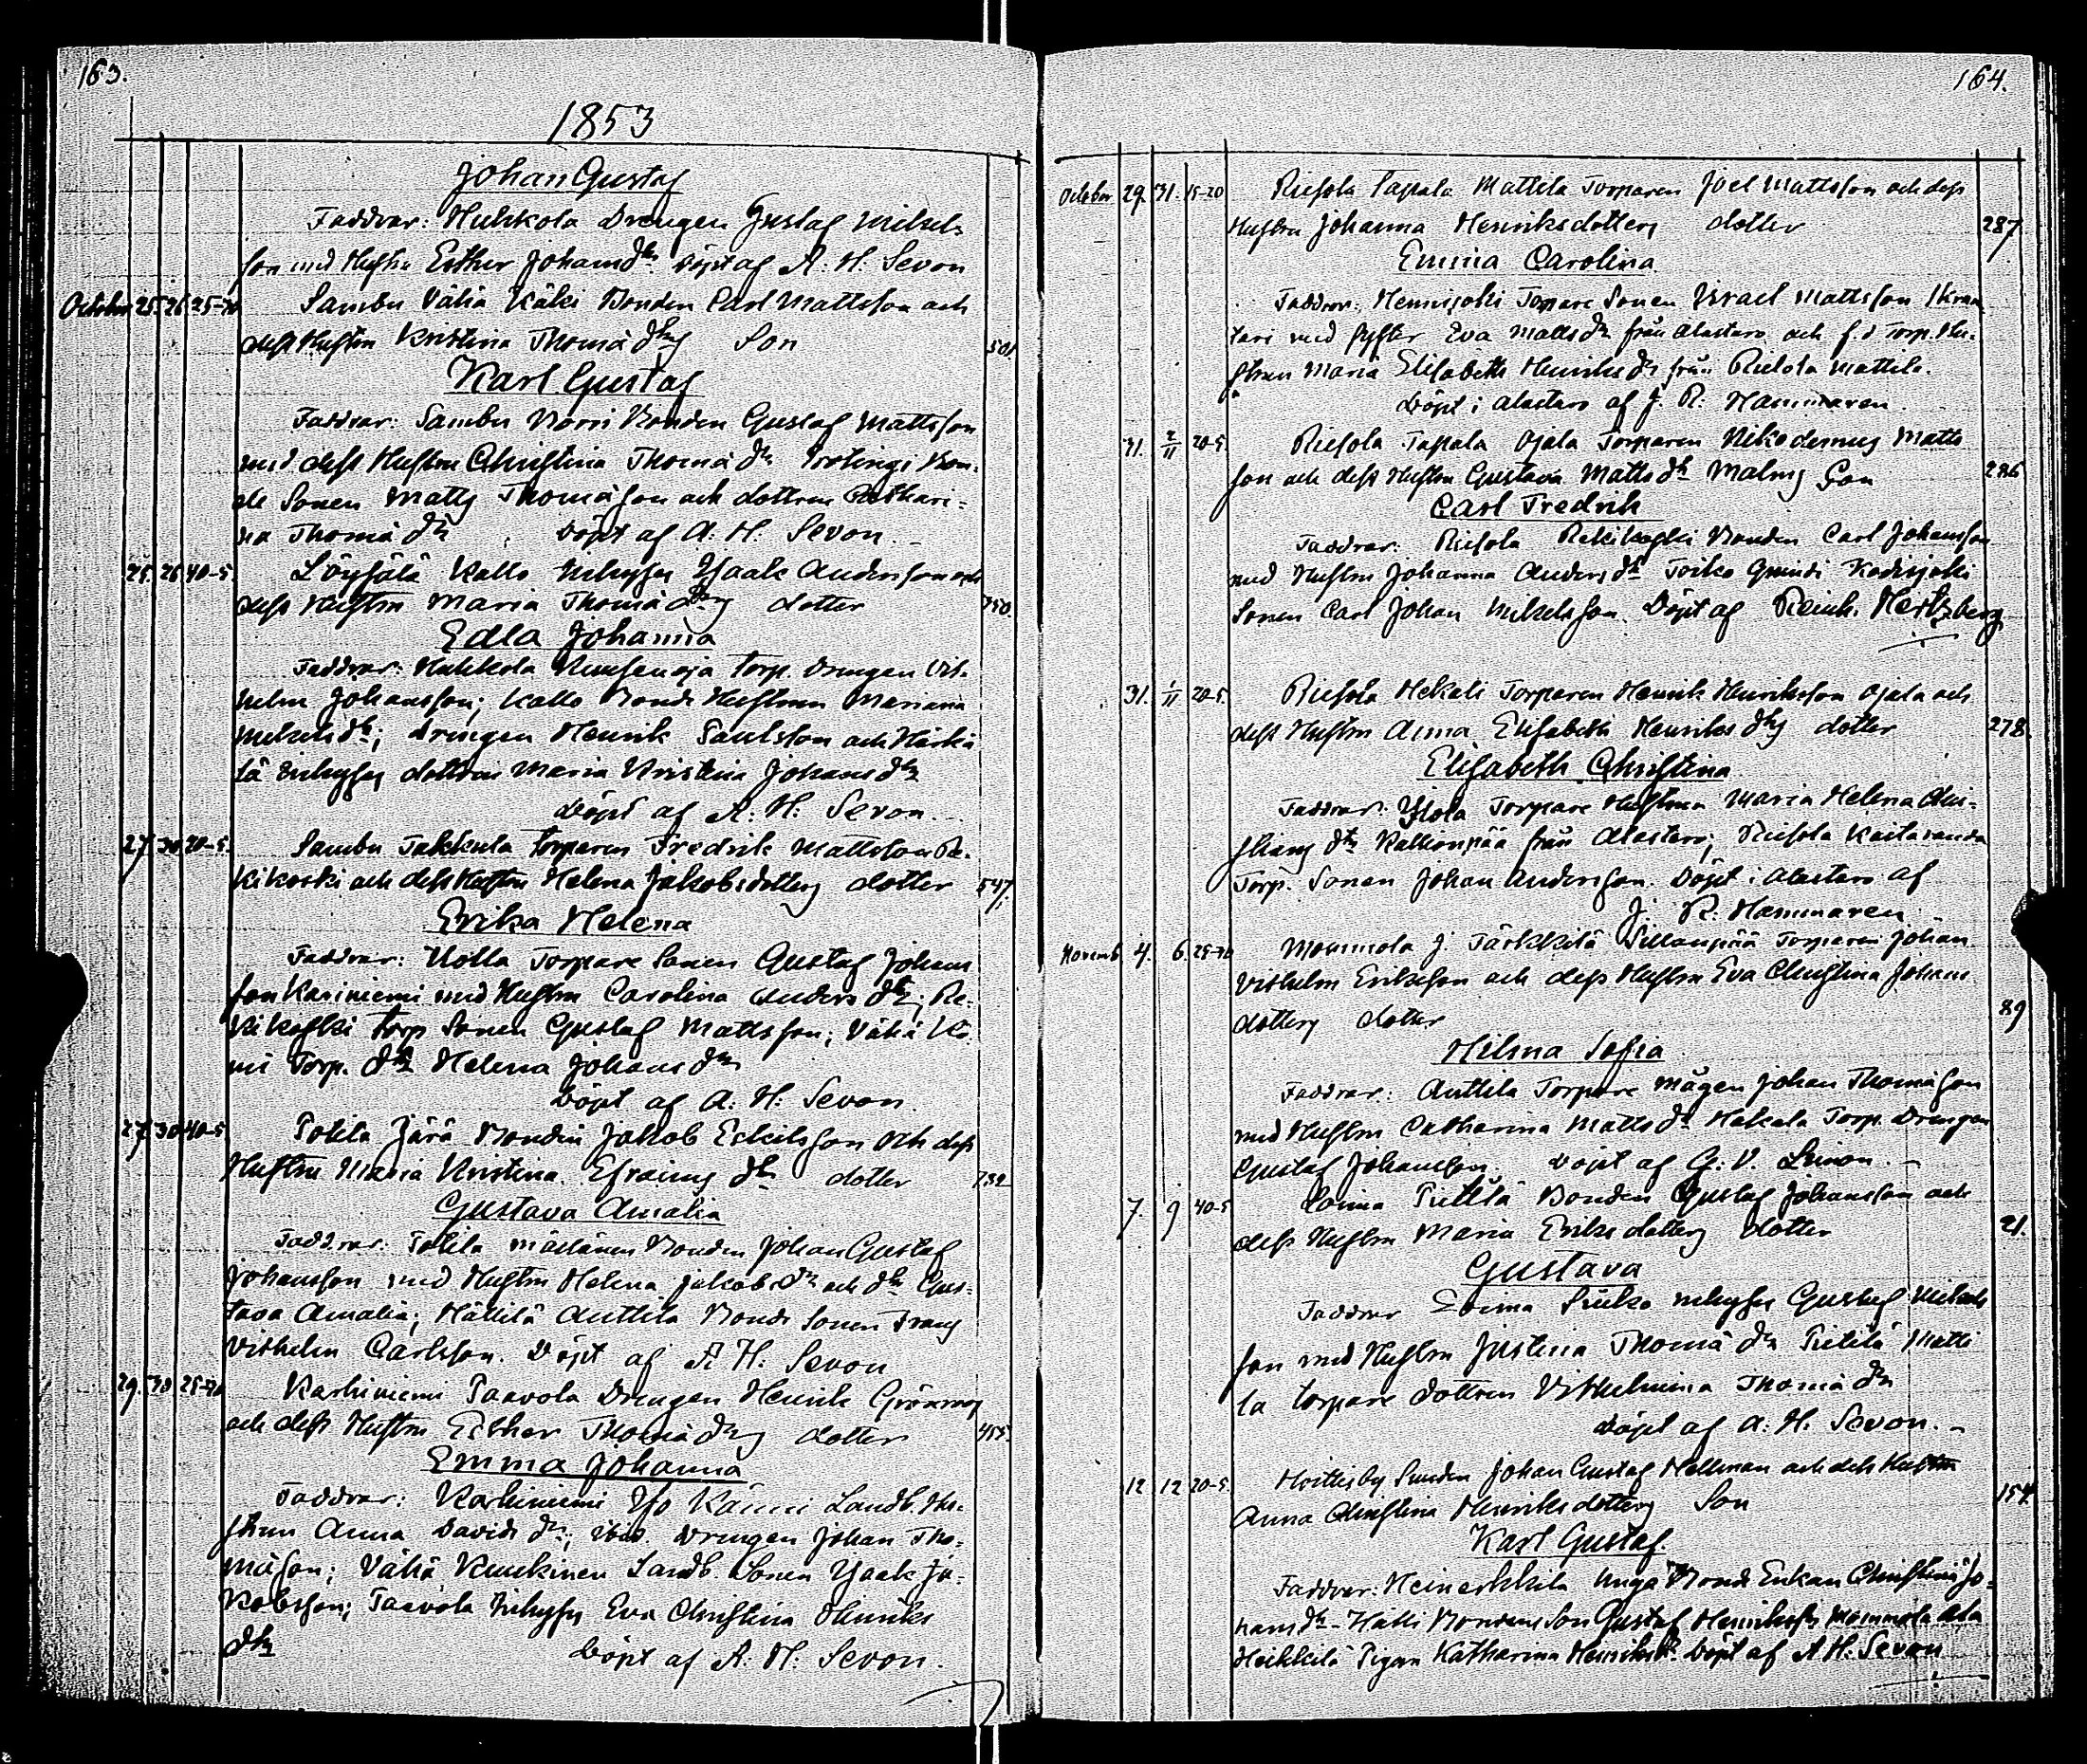 163.
1853
Johan Gustaf
Faddrar: Huhkola Drengen Gustaf Mikels
son med Hustru Esther Johansdtr döpt af A. H. Sevon
October 25. 26 25-30 Sambu Vähä Käki Bonden Carl Mattsson och
dess Hustru Kristina Thomädtrs Son 501
Karl Gustaf
Faddrar: Sambu Norri Bonden Gustaf Mattsson
med dess Hustru Christina Thomädtr Bon-
de Sonen Matts Thomäson och dottren Cathari-
na Thomädtr döpt af A. H. Sevon.
25. 26 40-5. Löysälä Kallo Inhyses Isaak Andersson och
dess Hustru Maria Thomädtrs dotter 750.
Edla Johanna
Faddrar: Huhkola Torp. drengen Vil-
helm Johansson; Kallo Bonde Hustrun Mariana
Mikelsdtr; drengen Henrik Saulsson och Härki-
lä Inhyses dottren Maria Kristina Johansdtr
döpt af A. H. Sevon.
27. 30 20-5. Sambu Jakkula Torparen Fredrik Mattsson Re-
kikoski och dess Hustru Helena Jakobsdotters dotter 547.
Erika Helena
Faddrar: Torpare Sonen Gustaf Johans
son Kariniemi med Hustru Carolina Andersdtr; Re-
kikoski Torp Sonen Gustaf Mattsson; Vähä Kö-
ni Torp. dtr Helena Johansdtr
döpt af A. H. Sevon.
27. 30 40-5. Potila Järä Bonden Jakob Eskilsson och dess
Hustru Maria Kristina Efraimsdtr dotter 732
Gustava Amalia
Faddrar: Potila Bonden Johan Gustaf
Johansson med Hustru Helena Jakobsdtr och dtr Gus-
tava Amalia; Anttila Bonde Sonen Frans
Vilhelm Carlsson. Döpt af A. H. Sevon
29. 30 25-30 Karhiniemi Paavola Drengen Henrik Grönroos
och dess Hustru Esther Thomädtrs dotter 455.
Emma Johanna
Faddrar: Karhiniemi Iso Känni Landb. Hu-
strun Anna Davidsdtr; ibid. Drengen Johan Tho-
mäson; Vähä Kuukinen Landb. Sonen Isaak Ja-
kobsson; Paavola Inhyses Eva Christina Henriks
dtr döpt af A. H. Sevon.
164.
October 29. 31. 15-20 Riesola Papala Mattila Torparen Joel Mattsson och dess
Hustru Johanna Henriksdotters dotter 287.
Emma Carolina
Faddrar: Hennisjoki Torpare Sonen Israel Mattsson
med syster Eva Mattsdtr från Alastaro och f.d Torp. Hu-
strun Maria Elisabeth Henriksdtr från Riesola Mattila.
Döpt i Alastaro af J. R. Hammaren.
31. 2/11 20-5. Riesola Papala Ojala Torparen Nikodemus Matts
son och dess Hustru Gustava Mattsdtr Malms Son 286
Carl Fredrik
Faddrar: Riesola Rekikoski Bonden Carl Johansson
med Hustru Johanna Andersdtr
Sonen Carl Johan Mikelsson. Döpt af Reinh. Hertzberg
31. 1/11 20-5. Riesola Mekali Torparen Henrik Henriksson Ojala och
dess Hustru Anna Elisabeth Henriksdtrs dotter 278.
Elisabeth Christina
Faddrar: Torpare Hustrun Maria Helena Chri-
stiansdtr Kallionpää från Alastaro; Riesola Kaitaranda
Torp. Sonen Johan Andersson. Döpt i Alastaro af
J. R. Hammaren
Novemb. 4. 6. 25-30 Mommola J. Järkkilä Sillanpää Torparen Johan
Vilhelm Eriksson och dess Hustru Eva Christina Johans
dotters dotter 89
Hilma Sofia
Faddrar: Anttila Torpare Mågen Johan Thomäson
med Hustru Catharina Mattsdtr Hakala Torp. Drengen
Gustaf Johansson. Döpt af G. V. Limon.
7. 9 40-5 Loima Pietilä Bonden Gustaf Johansson och
dess Hustru Maria Eriksdotters dotter 21.
Gustava
Faddrar Loima Inhyses Gustaf Mikels
son med Hustru Justina Thomädtr Pietilä Matti
la torpare dottren Vilhelmina Thomädtr
döpt af A. H. Sevon.
12 12 20-5. Hvittisby Smeden Johan Gustaf Hellman och dess Hustru
Anna Christina Henriksdotters Son 154.
Karl Gustaf.
Faddrar: Heinerkkila Unga Bonde Enkan Christina Jo-
hansdtr Bondens Son Gustaf Henriksson Mommola Ala
Heikkilä Pigan Katharina Henriksdtr. Döpt af A. H. Sevon